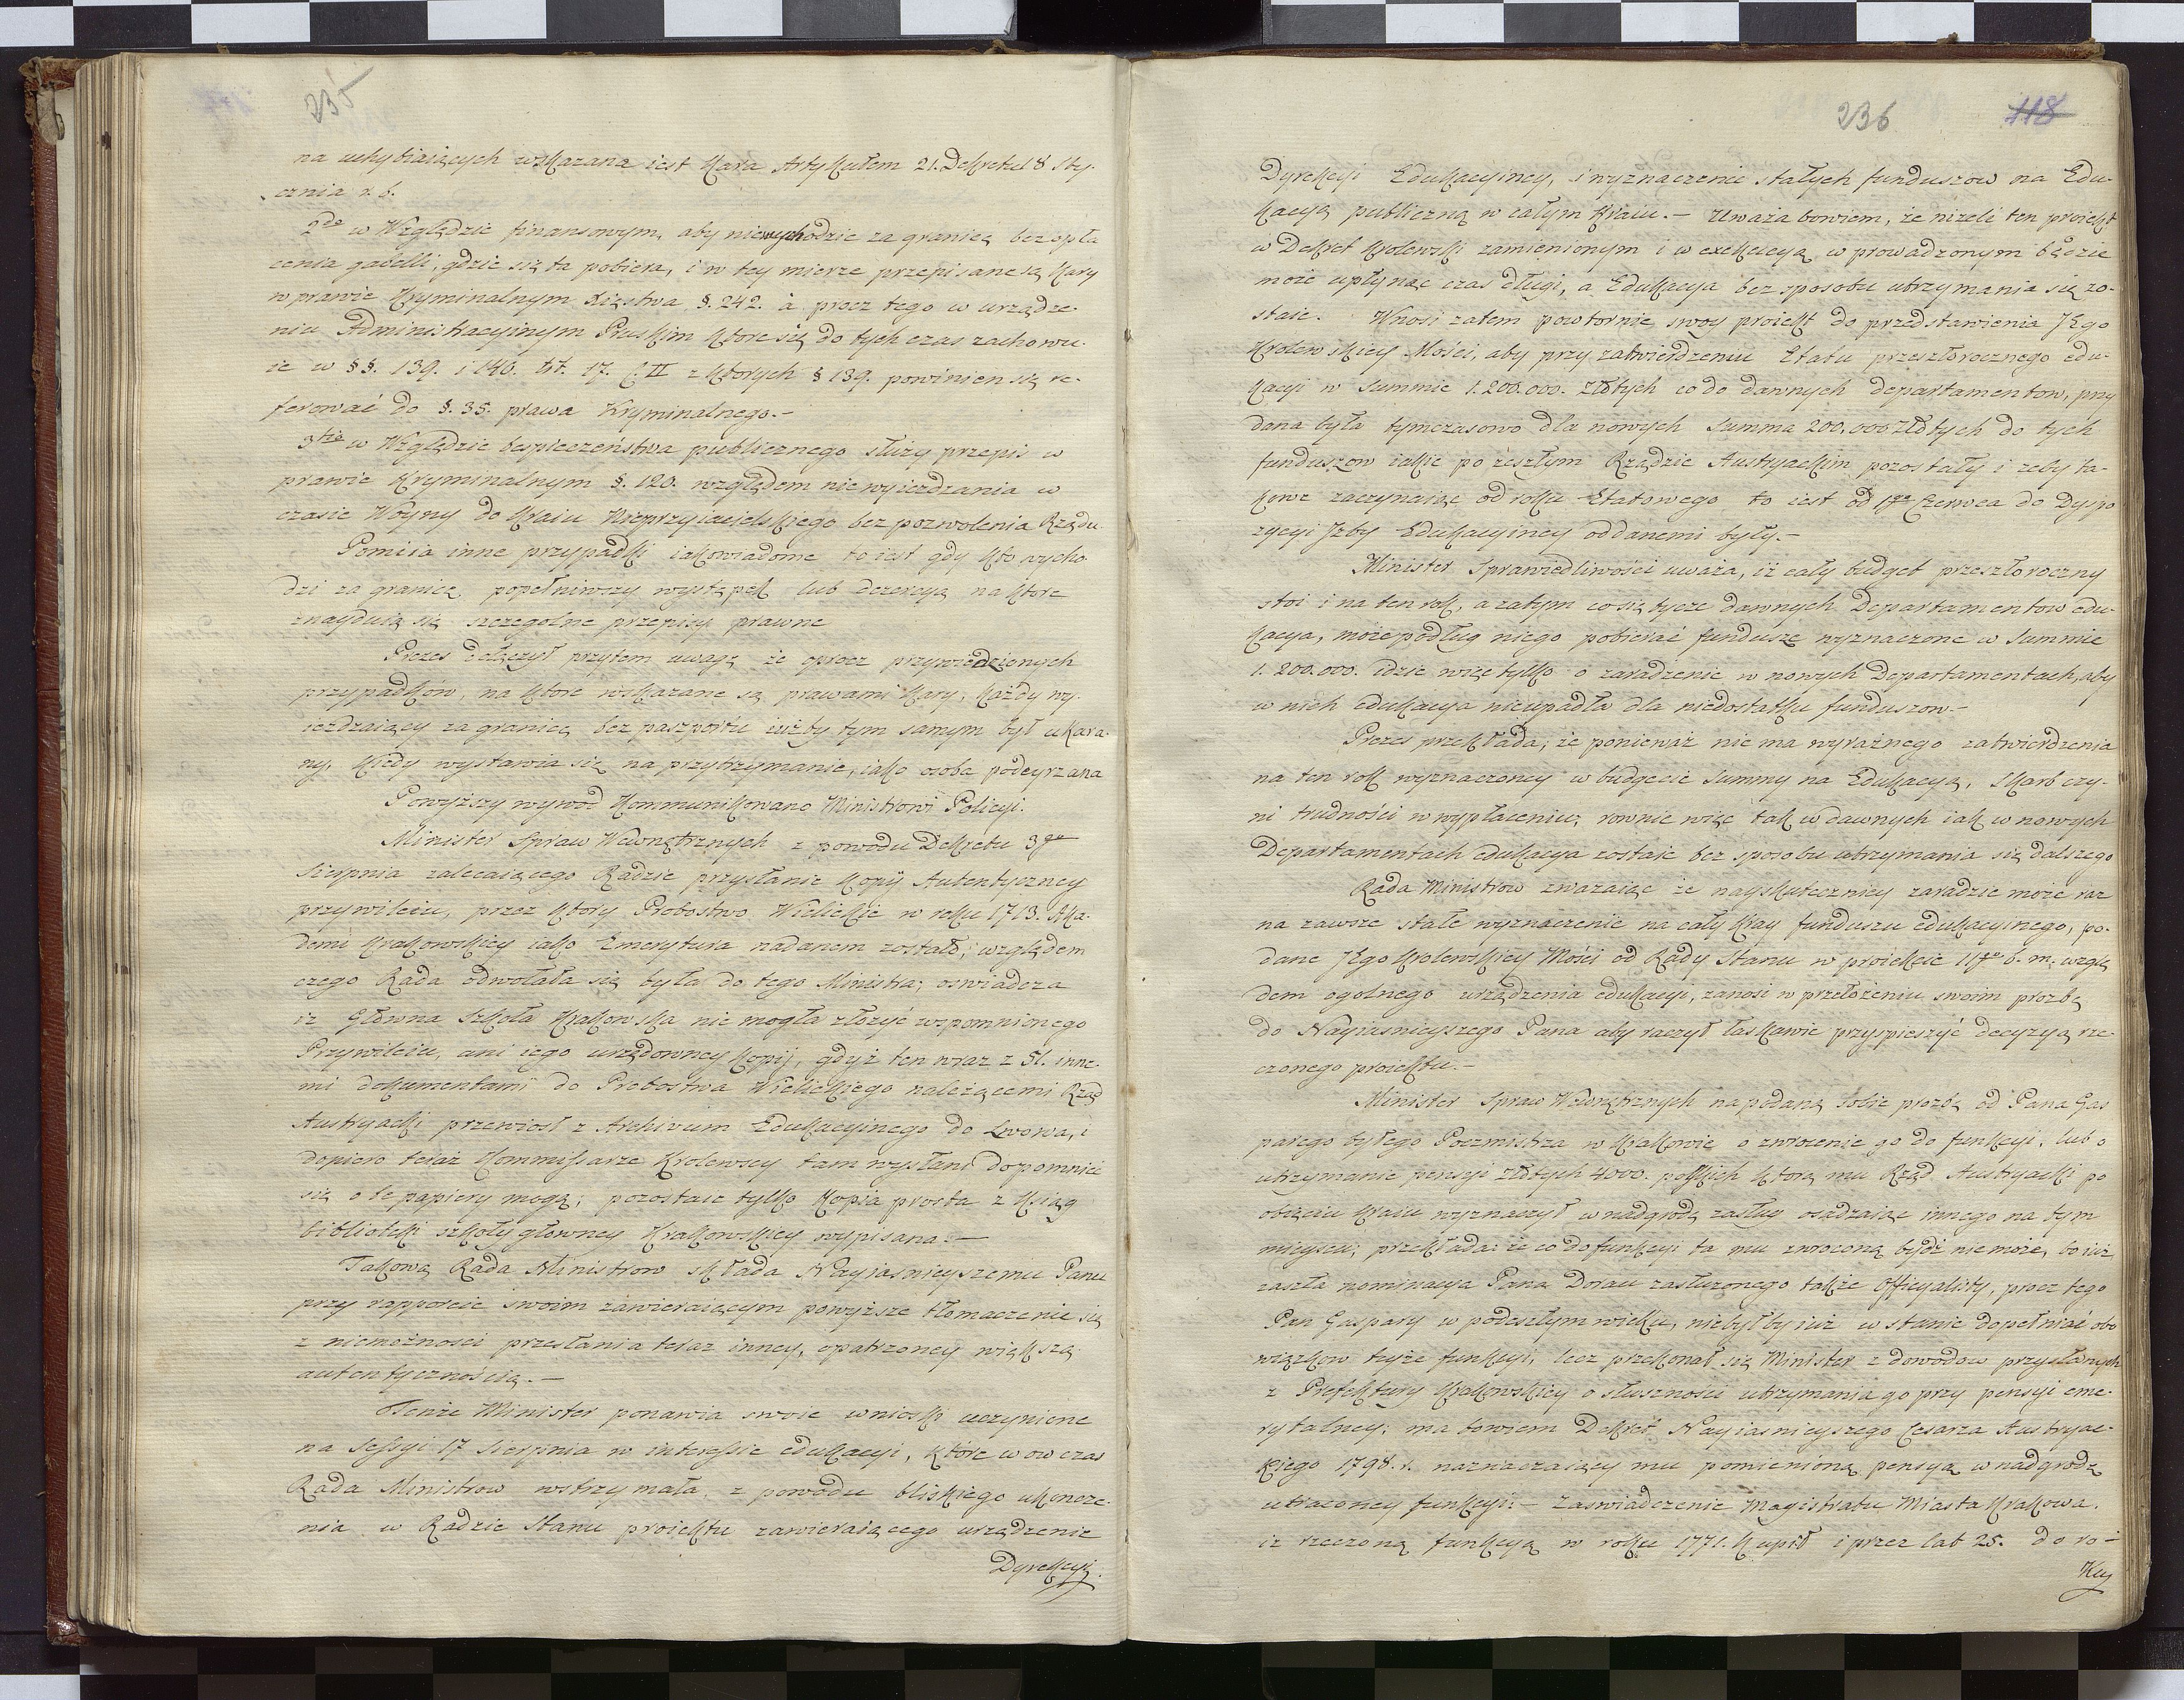 235
na uchybiaiących wskazana iest kara Artykułem 21. Dekretu 18 Sty-
cznia r. b.
2do w Względzie finansowym, aby niewychodzić za granicę bez opła
cenia gabelli, gdzie się ta pobiera, i w tey mierze przepisane są kary
w prawie kryminalnym Xięstwa §. 242. à procz tego w urządze-
niu Administracyinym Pruskim ktore się do tych czas zachowu-
ie w §§. 139. i 140. tit. 17. C. II z ktorych § 139. powinien się re-
ferować do §. 35. prawa Kryminalnego.-
3tio w Względzie bespieczeństwa publicznego służy przepis w
prawie Kryminalnym §. 120. względem niewyiezdzania w
czasie Woyny do kraiu Nieprzyiacielskiego bez pozwolenia Rządu.
Pomiia inne przypadki iakowiadome to iest gdy kto wycho-
dzi za granicę popełniwszy występek lub dezercyą na ktore
znayduią się szczegolne przepisy prawne
Prezes dołączył przytem uwagę że oprocz przywiedzionych
przypadków, na ktore wskazane są prawami kary, każdy wy-
iezdzaiący za granicę bez paszportu iużby tym samym był ukara-
ny, kiedy wystawia się na przytrzymanie, iako osoba podeyrzana
Powyższy wywod kommunikowano Ministrowi Policyi.
Minister Spraw Wewnętrznych z powodu Dekretu 3go
Sierpnia zalecaiącego Radzie przysłanie kopij Autentyczney
przywileiu, przez ktory Probostwo Wielickie w roku 1713. Aka-
demi Krakowskiey iako Emerytura nadanem zostało; względem
czego Rada odwołała się była do tego Ministra; oswiadcza
iż Głowna Szkoła Krakowska nie mogła złożyć wspomnionego
Przywileiu, ani iego urzędowney kopij, gdyż ten wraz z 51. inne-
mi dokumentami do Probostwa Wielickiego należącemi Rząd
Austryacki przewiosł z Archivum Edukacyinego do Lwowa, i
dopiero teraz Kommissarze Krolewscy tam wysłani dopomnieć
się o te papiery mogą; pozostaie tylko Kopia prosta z ksiąg
biblioteki szkoły głowney Krakowskiey wypisana.—
Takową Rada Ministrow składa Nayiasnieyszemu Panu
przy rapporcie swoim zawieraiącym powyższe tłomaczenie się
z niemożności przesłania teraz inney, opatrzoney większą
autentycznością.—
Tenże Minister ponawia swoie wnioski uczynione
na Sessyi 17 Sierpnia w interessie edukacyi, które w ow czas
Rada Ministrow wstrzymała, z powodu bliskiego ukoncze-
nia w Radzie Stanu proiektu zawieraiącego urządzenie
Dyrekcyi
236
118
Dyrekcyi Edukacyiney, i wyznaczenie stałych funduszow na Edu-
kacyą publiczną w całym Kraiu.— Uważa bowiem, że niżeli ten proiekt
w Dekret Krolewski zamienionym i w exekucyą w prowadzonym będzie
może upłynąć czas długi, a Edukacya bez sposobu utrzymania się zo-
staie. Wnosi zatem powtornie swoy proiekt do przedstawienia JEgo
Krolewskiey Mości, aby przy zatwierdzeniu Etatu przeszłorocznego edu-
kacyi w Summie 1.200.000. Złotych co do dawnych departamentow, przy
dana była tymczasowo dla nowych Summa 200.000 Złotych do tych
funduszow iakie po zeszłym Rządzie Austryackim pozostały i zeby ta-
kowe zaczynaiąc od roku Etatowego to iest od 1go Czerwca do Dyspo
zycyi Jzby Edukacyiney oddanemi były.—
Minister Sprawiedliwości uważa, iż cały budget przeszłoroczny
stoi i na ten rok, a zatym co się tycze dawnych Departamentow edu-
kacya, może podług niego pobierać fundusze wyznaczone w Summie
1.200.000. idzie więc tylko o zaradzenie w nowych Departamentach, aby
w nich edukacya nieupadła dla niedostatku funduszow.—
Prezes przekłada, że ponieważ nie ma wyraźnego zatwierdzenia
na ten rok wyznaczoney w budgecie Summy na Edukacyą, Skarb czy-
ni trudności w wypłaceniu; rownie więc tak w dawnych iak w nowych
Departamentach edukacya zostaie bez sposobu utrzymania się dalszego
Rada Ministrow zwazaiąc że nayskuteczniey zaradzić może raz
na zawsze stałe wyznaczenie na cały kray funduszu edukacyinego, po-
dane JEgo Krolewskiey Mości od Rady Stanu w proiekcie 11go b. m. wzglę
dem ogolnego urządzenia edukacyi, zanosi w przełożeniu swoim prozbę
do Nayiasnieyszego Pana aby raczył łaskawie przyspieszyć decyzyą rze-
czonego proiektu.—
Minister Spraw Wewnętrznych na podaną sobie prozbę od Pana Gas
parego byłego Poczmistrza w Krakowie o zwrocenie go do funkcyi, lub o
utrzymanie pensyi złotych 4000. polskich ktorą mu Rząd Austryacki po
obięciu kraiu wyznaczył w nadgrodę zasług osądzaiąc innego na tym
mieyscu; przekłada: że co do funkcyi ta mu zwroconą bydź nie może, bo iuż
zaszła nominacya Pana Dorau zasłużonego także Officyalisty, procz tego
Pan Gaspary w podeszłym wieku, niebyłby iuż w stanie dopełniać obo
wiązkow teyże funkcyi, lecz przekonał się Minister z dowodow przysłanych
z Prefektury Krakowskiey o słuszności utrzymania go przy pensyi eme-
rytalney; ma bowiem Dekret Nayiasnieyszego Cesarza Austryac-
kiego 1798. r. naznaczaiący mu pomienioną pensyą w nadgrodę
utraconey funkcyi;— zaswiadczenie Magistratu Miasta Krakowa.
iż rzeczoną funkcyą w roku 1771. kupił i przez lat 25. do ro-
ku